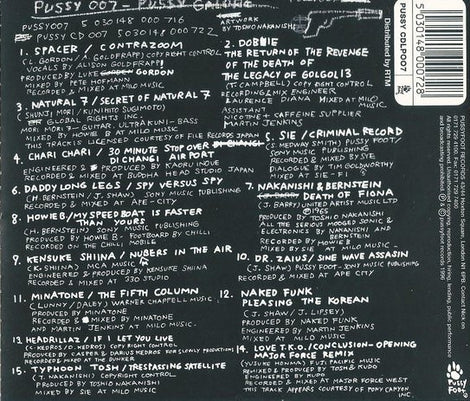 PUSSY 007 - PUSSY GALORE
PUSSY007 5 030148 000 716
PUSSY CD 007 5 030148 000 722
ARTWORK
BY TOSHIO NAKANISHI
1. SPACER / CONTRAZOOM
(L. GORDON / A. GOLDFRAPP) COPYRIGHT CONTROL
VOCALS BY ALISON GOLDFRAPP
PRODUCED BY LUKE GORDON
MIXED BY PETE HOFMANN
RECORDED & MIXED AT MILO MUSIC
2. DOBIE
THE RETURN OF THE REVENGE
OF THE DEATH OF
THE LEGACY OF GOLGOL13
(T. CAMPBELL) COPYRIGHT CONTROL
RECORDING & MIX ENGINEER
LAURENCE DIANA MIXED AT MILO MUSIC
ASSISTANT
NICOTINE & CAFFEINE SUPPLIER
MARTIN JENKINS
3. NATURAL 7 / SECRET OF NATURAL 7
(SHUNJI MORI / KUNIMITO SUGIMOTO)
GLOBAL RIGHTS INC.
MORI MORI 3 - GUITAR ULTRA KUNI - BASS
MIXED BY HOWIE B AT MILO MUSIC
THIS TRACK IS LICENCED COURTESY OF FILE RECORDS JAPAN
4. CHARI CHARI / 30 MINUTE STOP OVER
DI CHANGE AIR PORT
ENGINEERED & PRODUCED BY KAORU INOUE
RECORDED AT BUDDHA HEAD STUDIO JAPAN
5. SIE / CRIMINAL RECORD
(S. MEDWAY SMITH) PUSSY FOOT /
SONY MUSIC PUBLISHING
RECORDED & MIXED BY SIE
DIALOGUE BY TIM GOLDSWORTHY
MIXED AT SIE-FI
6. DADDY LONG LEGS / SPY VERSUS SPY
(H. BERNSTEIN / J. SHAW) SONY MUSIC PUBLISHING
RECORDED & MIXED AT APE-CITY
7. NAKANISHI & BERNSTEIN
DEATH OF FIONA
(J. BARRY) UNITED ARTIST MUSIC LTD
©1965
PRODUCED BY TOSHIO NAKANISHI
ALL THE SERIOUS MOOGED SONIC &
ELECTRONICS BY NAKANISHI, AND
BERNSTEIN
RECORDED BY HOWIE B
MIXED BY SIE AT MILO MUSIC.
8. HOWIE B / MY SPEED BOAT IS FASTER
THAN YOURS
(H. BERNSTEIN) SONY MUSIC PUBLISHING
PRODUCED BY HOWIE B - FOOTBOARD BY CHILLI
RECORDED ON THE CHILLI MOBILE
9. KENSUKE SHIINA / NUBERS IN THE AIR
(K. SHIINA) MCA MUSIC
ENGINEERED & PRODUCED BY KENSUKE SHIINA
RECORDED & MIXED AT 330 STUDIO
10. DR. ZAIUS / SINE WAVE ASSASIN
(J. SHAW) PUSSY FOOT - SONY MUSIC PUBLISHING
RECORDED & MIXED AT APE CITY
11. MINATONE / THE FIFTH COLUMN
(LUNNY / DALEY) WARNER CHAPPELL MUSIC
PRODUCED BY MINATONE
RECORDED & MIXED BY MINATONE
AND MARTIN JENKINS AT MILO MUSIC.
12. NAKED FUNK
PLEASING THE KOREAN
(J. SHAW / J. LIPSEY)
PRODUCED BY NAKED FUNK
ENGINEERED BY MARTIN JENKINS
MIXED AT MILO MUSIC
13. HEADRILLAZ / IF I LET YOU LIVE
(C. KEDROS / D. KEDROS) COPY RIGHT CONTROL
PRODUCED BY CASPER & DARIUS KEDROS FOR SLOWLY PRODUCTIONS
RECORDED & MIXED AT THE BUNKER
14. LOVE T.K.O. / CONCLUSION - OPENING
MAJOR FORCE REMIX
(YUSUKE HONMA) FUJI PACIFIC MUSIC
REMIXED & PRODUCED BY TOSH & KUDO
ENGINEERED BY KUDO
RECORDED & MIXED AT MAJOR FORCE WEST
THIS TRACK APPEARS COURTESY OF PONY CANYON
INC.
15. TYPHOON TOSH / TRESPASSING SATELLITE
(T. NAKANISHI) COPYRIGHT CONTROL
PRODUCED BY TOSHIO NAKANISHI
MIXED BY SIE AT MILO MUSIC
Distributed by RTM
PUSSY CDLP007
5030148000728
PUSSY FOOT